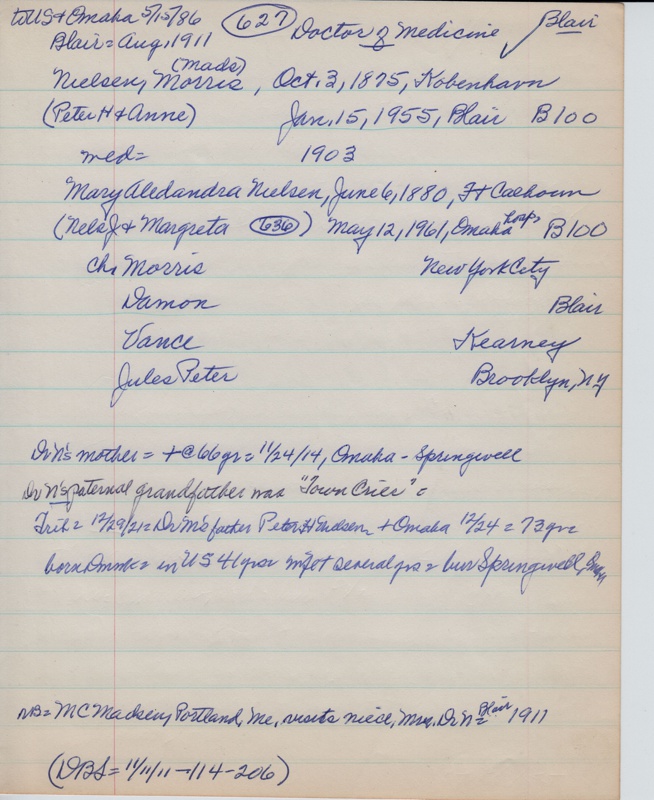 to US & Omaha 5/15/86 627 Doctor of Medicine Blair
Blair = Aug, 1911
(Mads)
Nielsen, Morris, Oct. 3, 1875, Kobenhavn
(Peter H & Anne) Jan. 15, 1955, Blair B100
med = 1903
Mary Aledandra Nielsen, June 6, 1880, Ft Calhoun
(Nels J & Margreta 636) May 12, 1961, Omaha hosp B100
Ch: Morris New York City
Damon Blair
Vance Kearney
Jules Peter Brooklyn, NY
Dr N's mother = + @ 66 yr = 11/24/14, Omaha - Springwell
Dr N's paternal grandfather was "Town Crier" =
Trib = 12/29/21 = Dr N's father Peter H Nielsen + Omaha 12/24 = 73 yr =
born Dnmk = in US 41 yrs = several yrs = bur Springwell,
NB = MC Madsen, Portland, Me, visits niece, Mrs. Dr N = Blair 1911
(DBS = 11/11/11 - 114-206)